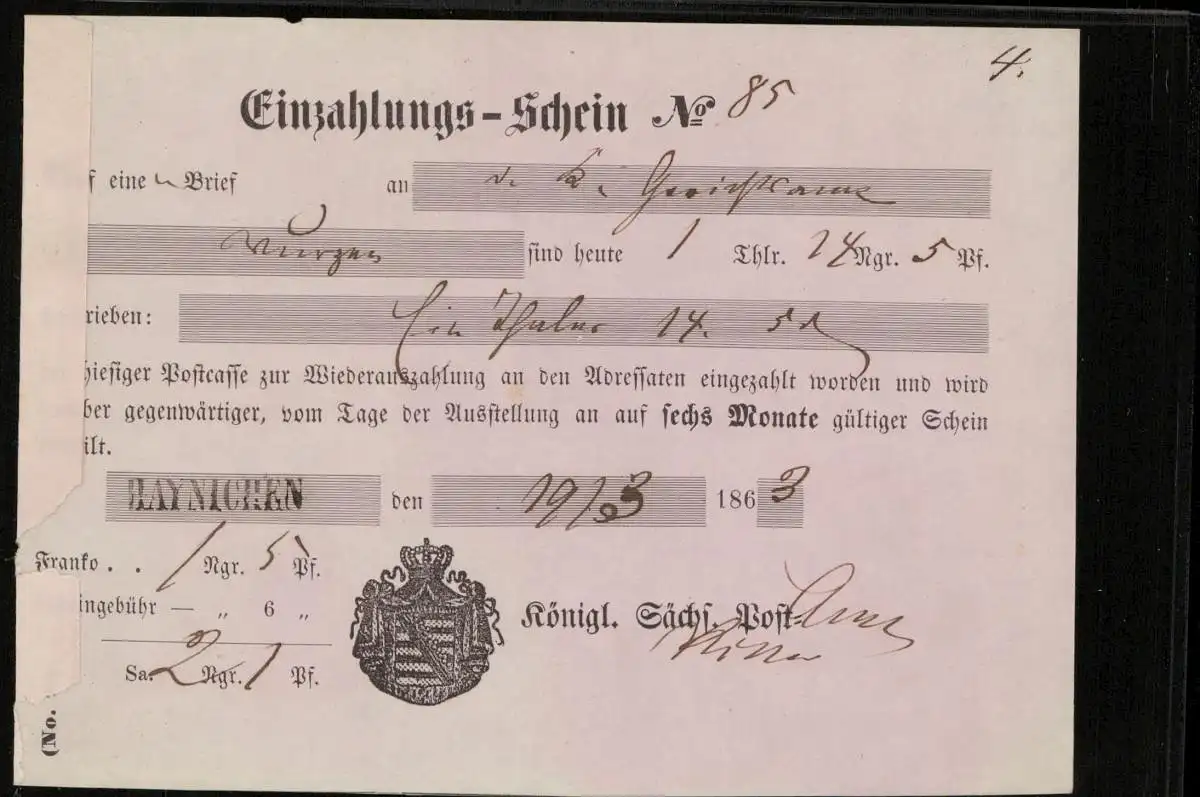 4.
Einzahlungs-Schein No 85
f einen Brief an d. K. Gerichtsamt
Wurzen sind heute 1 Thlr. 14 Ngr. 5 Pf.
rieben: Ein Thaler 14. 5
hiesiger Postcasse zur Wiederauszahlung an den Adressaten eingezahlt worden und wird
ber gegenwärtiger, vom Tage der Ausstellung an auf sechs Monate gültiger Schein
ilt.
HAYNICHEN den 19/3 1863
Franko . . 1 Ngr. 5 Pf.
ingebühr — „ 6 „
Königl. Sächs. Post-Amt
Sa. 2 Ngr. 1 Pf.
(No.